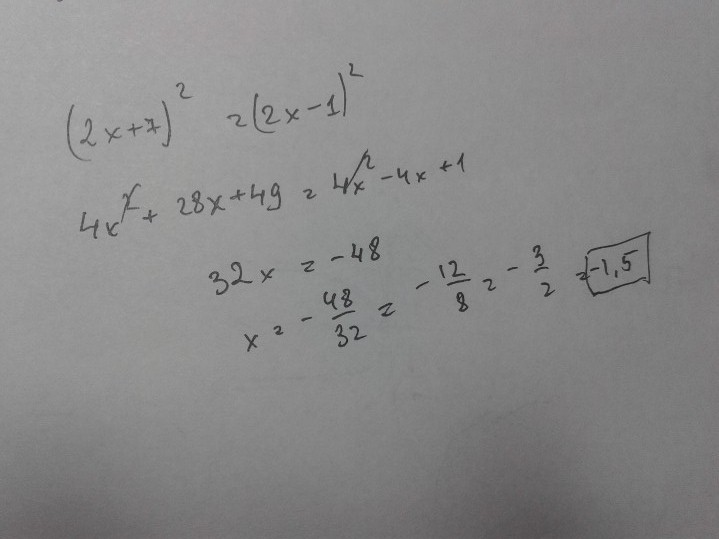 (2x+7)² = (2x-1)²
4x² + 28x+49 = 4x² -4x +1
32x = -48
x = -48/32 = -12/8 = -3/2 = -1,5